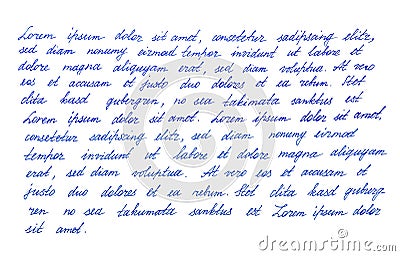 Lorem ipsum dolor sit amet, consetetur sadipscing elitr,
sed diam nonumy eirmod tempor invidunt ut labore et
dolore magna aliquyam erat, sed diam voluptua. At vero
eos et accusam et justo duo dolores et ea rebum. Stet
clita kasd gubergren, no sea takimata sanktus est
Lorem ipsum dolor sit amet. Lorem ipsum dolor sit amet,
consetetur sadipscing elitr, sed diam nonumy eirmod
tempor invidunt ut labore et dolore magna aliquyam
erat, sed diam voluptua. At vero eos et accusam et
justo duo dolores et ea rebum. Stet clita kasd guberg
ren no sea takumata sanktus est Lorem ipsum dolor
sit amet.
© dreamstime.com